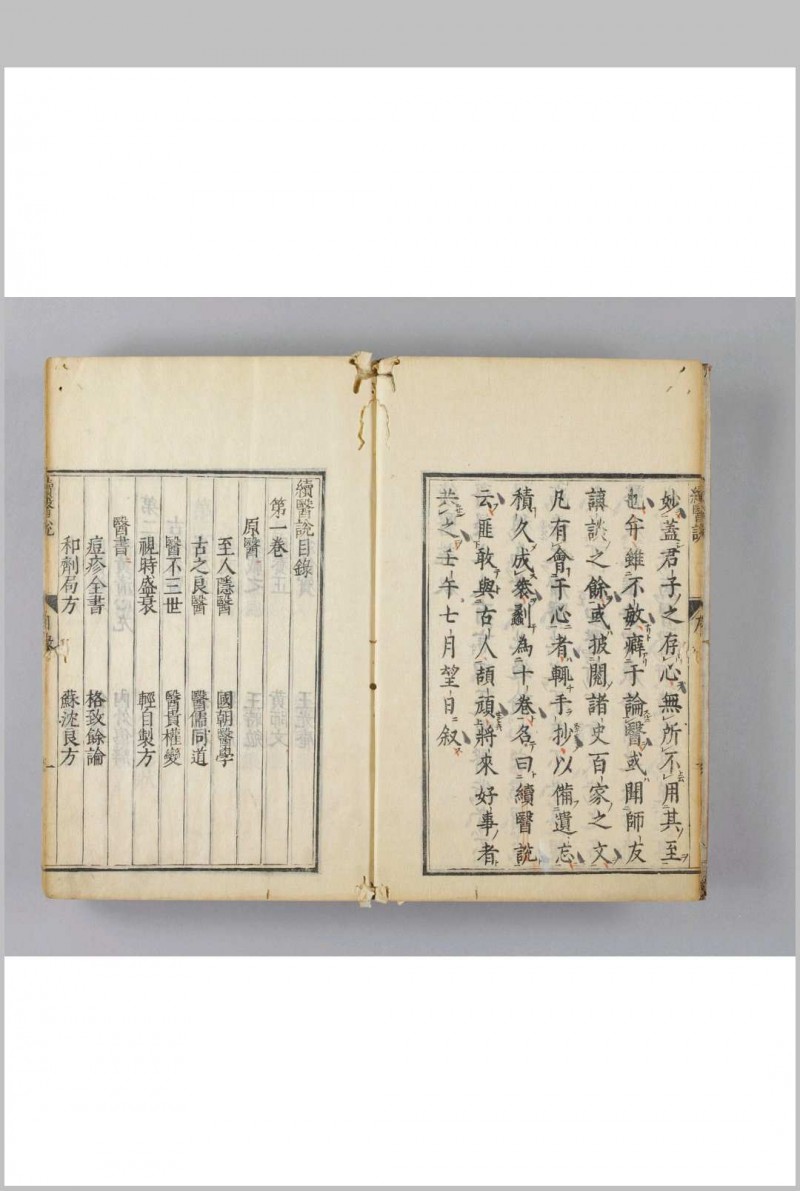 妙蓋君子之存心無所不用其至
也弁雖不敏癖于論醫或聞師友
談之餘或披閱諸史百家之文
凡有會于心者輒手抄以備遺忘
積久成褁劙為十卷名曰續醫說
云匪敢與古人頡頏將來好事者
共之壬午七月望日叙
續醫說目錄
第一卷
原醫
至人隱醫
國朝醫學
古之良醫
醫儒同道
醫不三世
醫貴權變
視時盛衰
輕自製方
醫書
痘疹全書
格致餘論
和劑局方
蘇沈良方